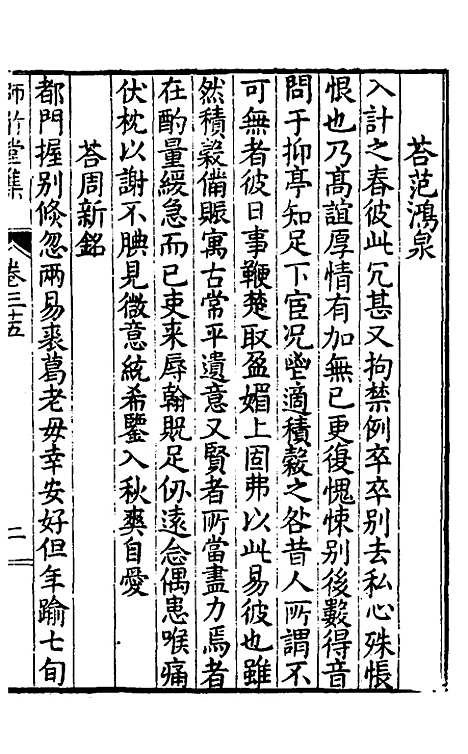 荅范鴻泉
入計之春彼此冗甚又拘禁例卒卒别去私心殊悵
恨也乃高誼厚情有加無已更復愧悚别後數得音
問于抑亭知足下宦况𡐤適積穀之咎昔人所謂不
可無者彼日事鞭楚取盈媚上固弗以此易彼也雖
然積穀備賑寓古常平遺意又賢者所當盡力焉者
在酌量緩急而已吏来辱翰貺足仞遠念偶患喉痛
伏枕以謝不腆見微意統希鑒入秋爽自愛
荅周新銘
都門握别倏忽兩易裘葛老母幸安好但年踰七旬
師竹堂集
卷三十五
二